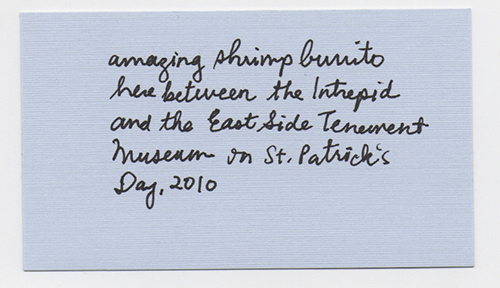 amazing shrimp burrito
here between the Intrepid
and the East Side Tenement
Museum on St. Patrick's
Day, 2010